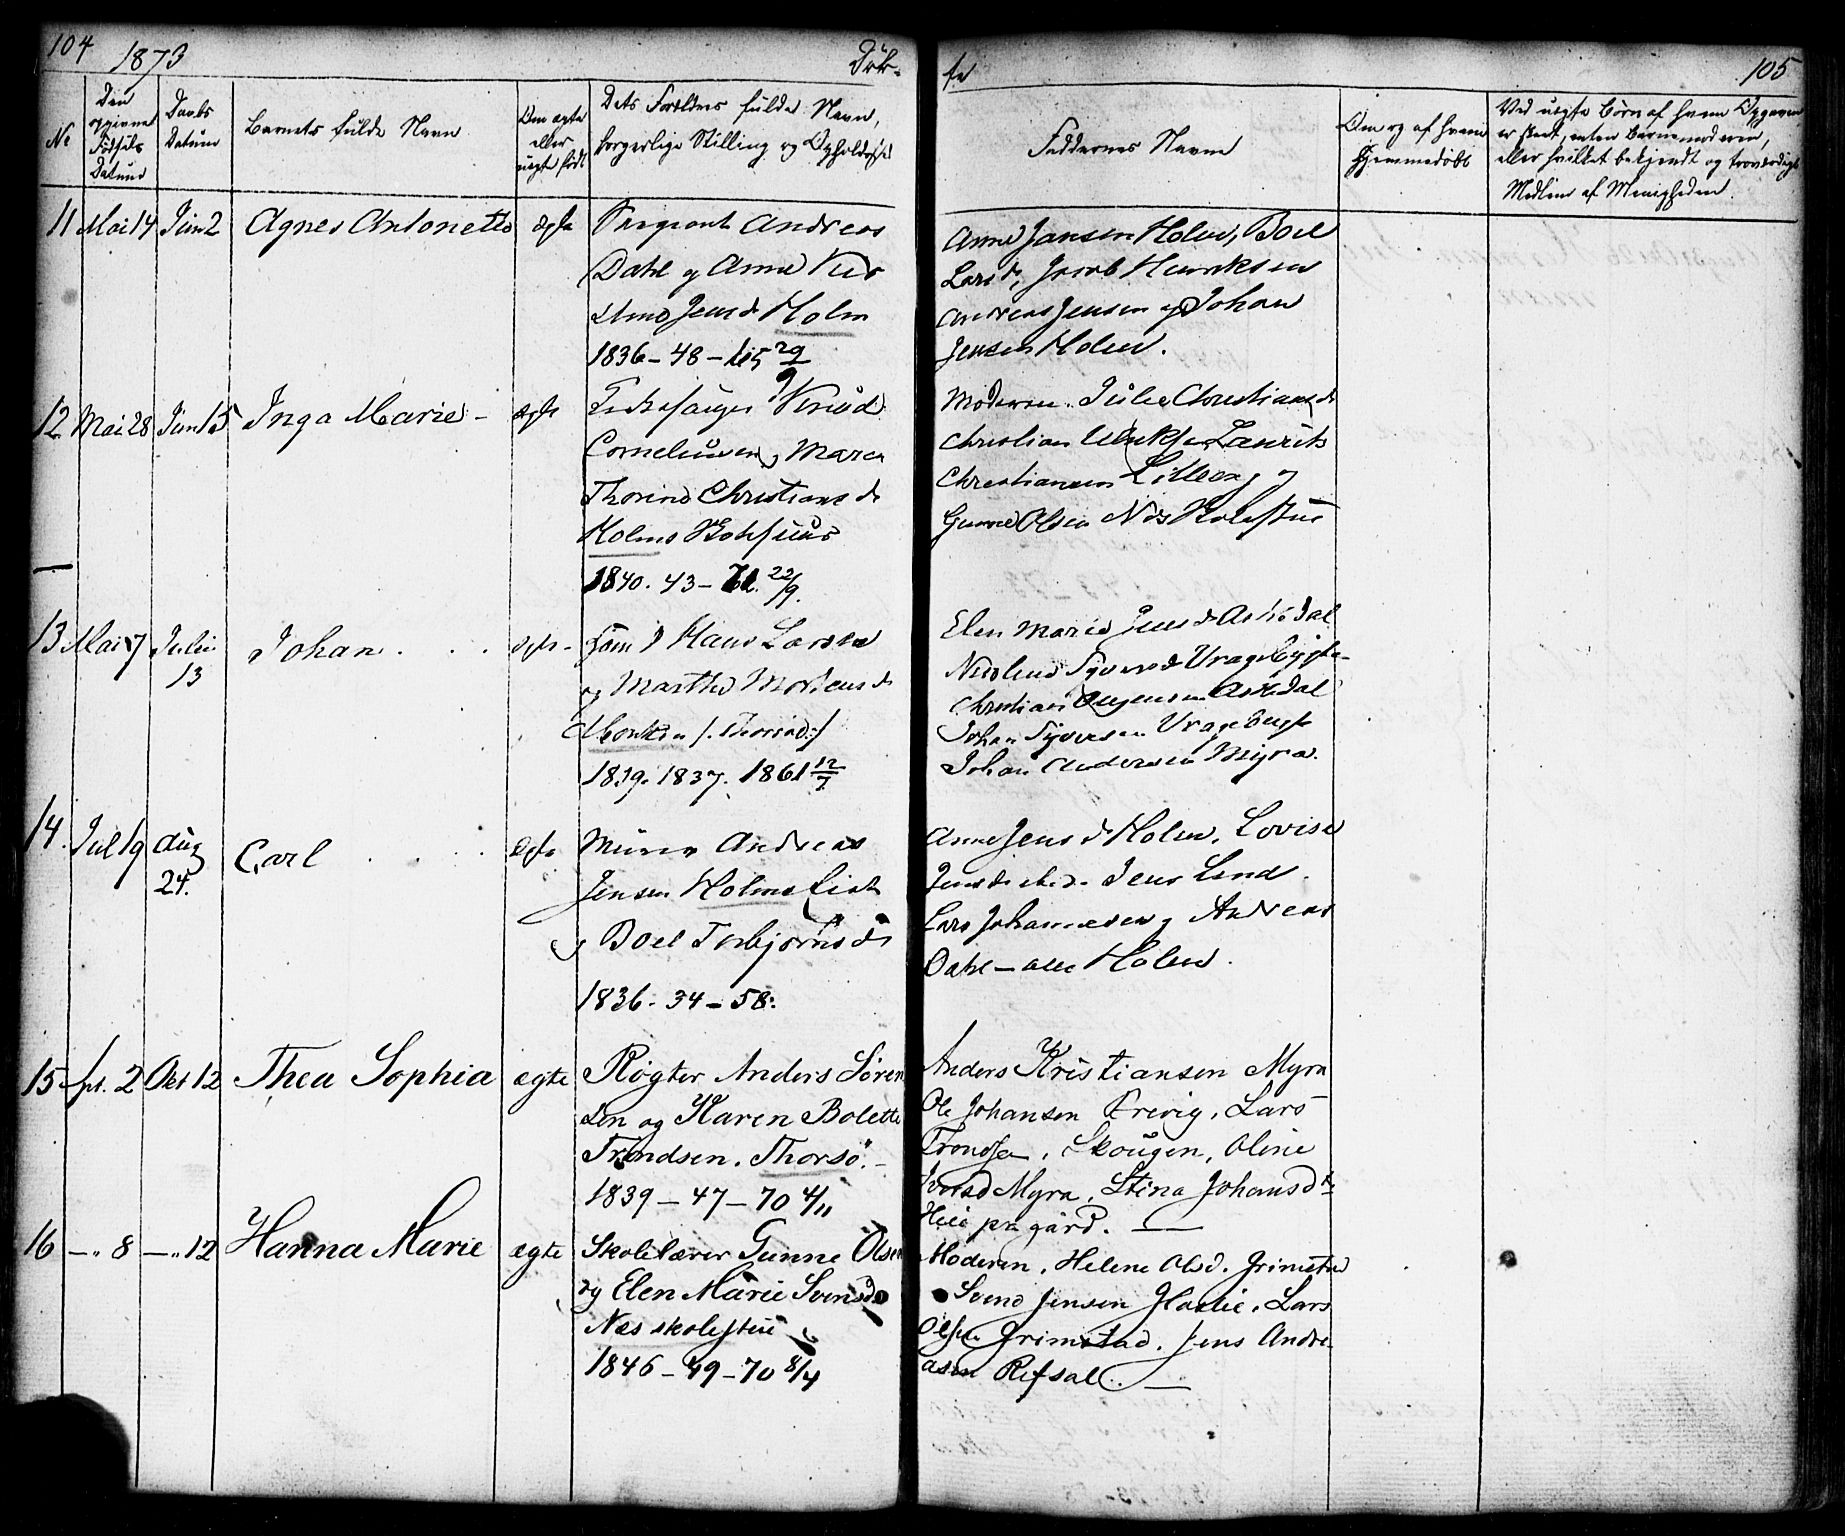 104
1873
Døb-
te
105
No
Den opgivne Fødsels Datum
Daabs Datum
Barnets fulde Navn
Om ægte eller uægte født
Dets Forældres fulde Navn,
borgerlige Stilling og Opholdssted
Faddernes Navne
Om og af hvem Hjemmedøbt
Ved uægte Børn af hvem Opgaven
er skeet, enten Barnemoderen,
eller hvilket bekjendt og troværdigt
Medlem af Menigheden
11 Mai 14 Juni 2 Agnes Antonette ægte
Sergeant Andreas
Dahl og Anne
Jensd Holm
1836 - 48 -
Anne Jensen Holm, Boel
Larsd, Jacob Henriksen
Andreas Jensen og Johan
Jensen Holm.
12 Mai 28 Juni 15 Inga Marie - ægte
Knud
Corneliussen og Maren
Thorine Christiansd
Holms
1840. 43 - 22/9.
Moderen. Julie Christiansd
Christian Lauritz
Christiansen Lilleby og
Gunne Olsen Næs Skolestue
13 Mai 7 Juli 13 Johan . . . ægte -
Hans Larsen
og Marthe Mortensd
1839. 1837. 1861 12/7
Elen Marie Jensd Askedal
Syversd Vragebygte
Christian Askedal
Johan Syversen Vragebygte
Johan Andersen Myra.
14. Jul 19 Aug 24. Carl . . . ægte
Murer Andreas
Jensen Holms
og Boel Torbjørnsd
1836 - 34 - 58.
Anne Jensd Holm, Lovise
Jensd Jens Lund.
Lars Johannesen og Andreas
Dahl - alle Holm.
15 Spt. 2 Okt 12 Thea Sophia ægte
Røgter Anders Søren
sen og Karen Bolette
Trondsen. Thorsø. -
1839 - 47 - 70 4/11
Anders Kristiansen Myra
Ole Johansen Frevig, Lars
Trondsen, Skougen, Oline
Iversd Myra, Stina Johansd
Heie prgård. -
16 -" 8 -" 12 Hanna Marie ægte
Skolelærer Gunne Olsen
og Elen Marie Svensd
Næs skolestue
1846 - 49 - 70 8/4
Moderen, Helene Olsd. Grimstad
Svend Jensen Lars
Olsen Grimstad. Jens Andre-
asen Refsal. -